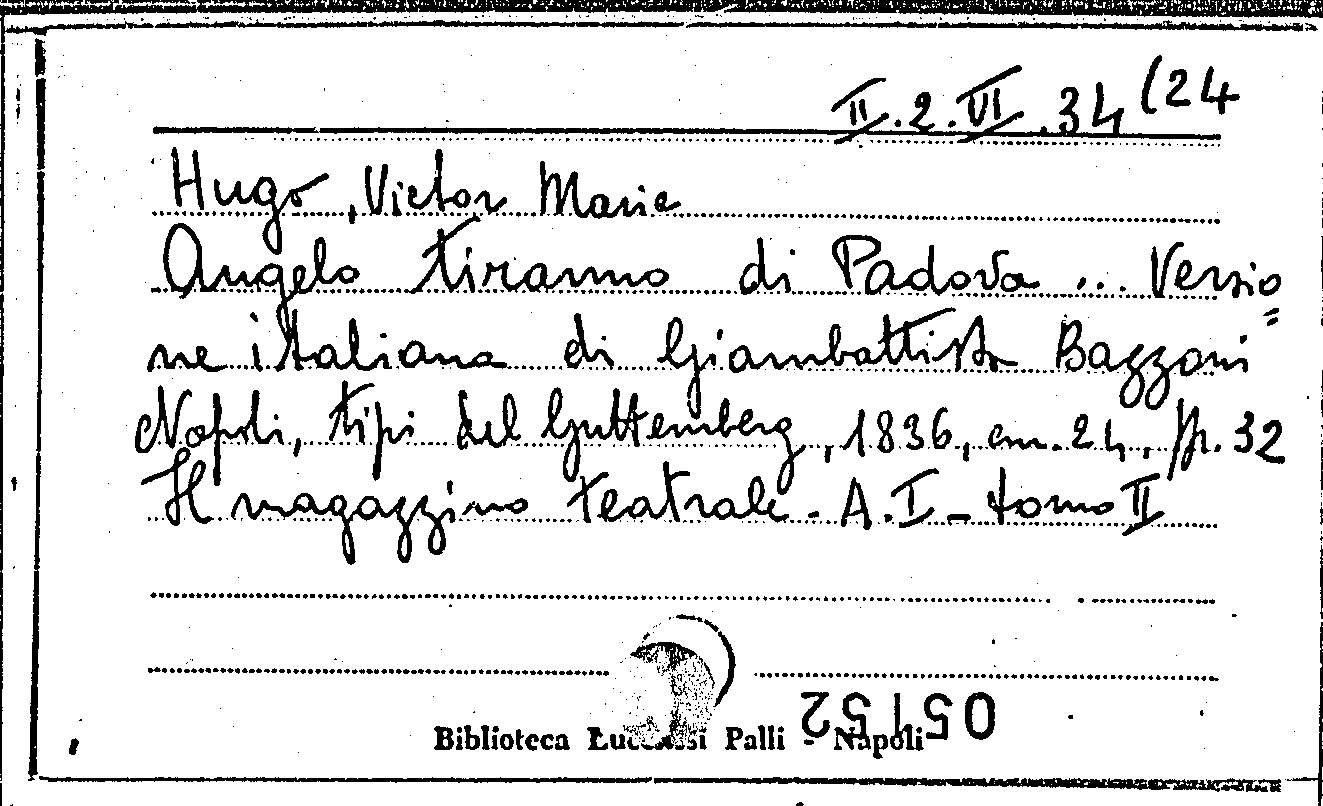 II.2.VI.34(24
Hugo, Victor Marie
Angelo tiranno di Padova ... Versio=
ne italiana di Giambattista Bazzoni
Napoli, tipi del Guttemberg, 1836, cm. 24, pp. 32
Il magazzino teatrale - A.I - tomo II
05152
Biblioteca Lucchesi Palli - Napoli